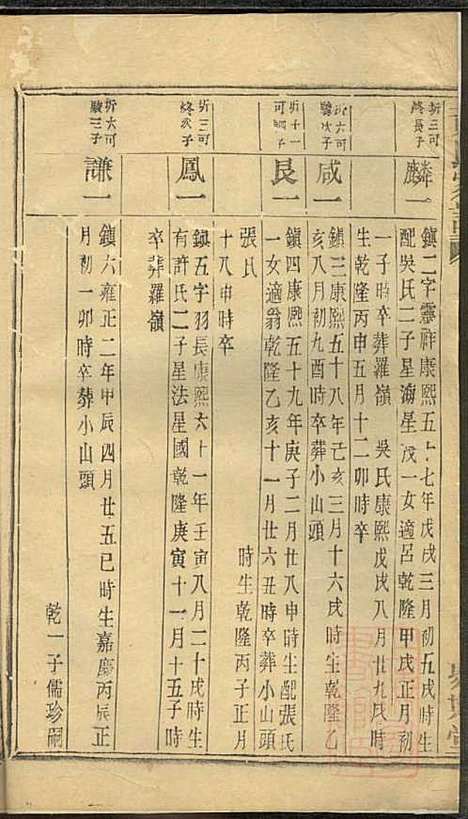 折三可
終長子
麟一
鎮二字靈祥康熙五十七年戊戌三月初五戌時生
配吳氏二子星海星茂一女適呂乾隆甲戌正月初
一子時卒葬羅嶺 吳氏康熙戊戌八月廿九戌時
生乾隆丙申五月十二卯時卒
折六可
次子
咸一
鎮三康熙五十八年己亥三月十六戌時生乾隆乙
亥八月初九酉時卒葬小山頭
折十一
可 子
艮一
鎮四康熙五十九年庚子二月廿八申時生配張氏
一女適翁乾隆乙亥十一月廿六丑時卒葬小山頭
張氏 時生乾隆丙子正月
十八申時卒
折三可
終次子
鳳一
鎮五字羽長康熙六十一年壬寅八月二十戌時生
有許氏二子星法星國乾隆庚寅十一月十五子時
卒葬羅嶺
折六可
駿三子
謙一
鎮六雍正二年甲辰四月廿五巳時生嘉慶丙辰正
月初一卯時卒葬小山頭
乾一子儒珍嗣